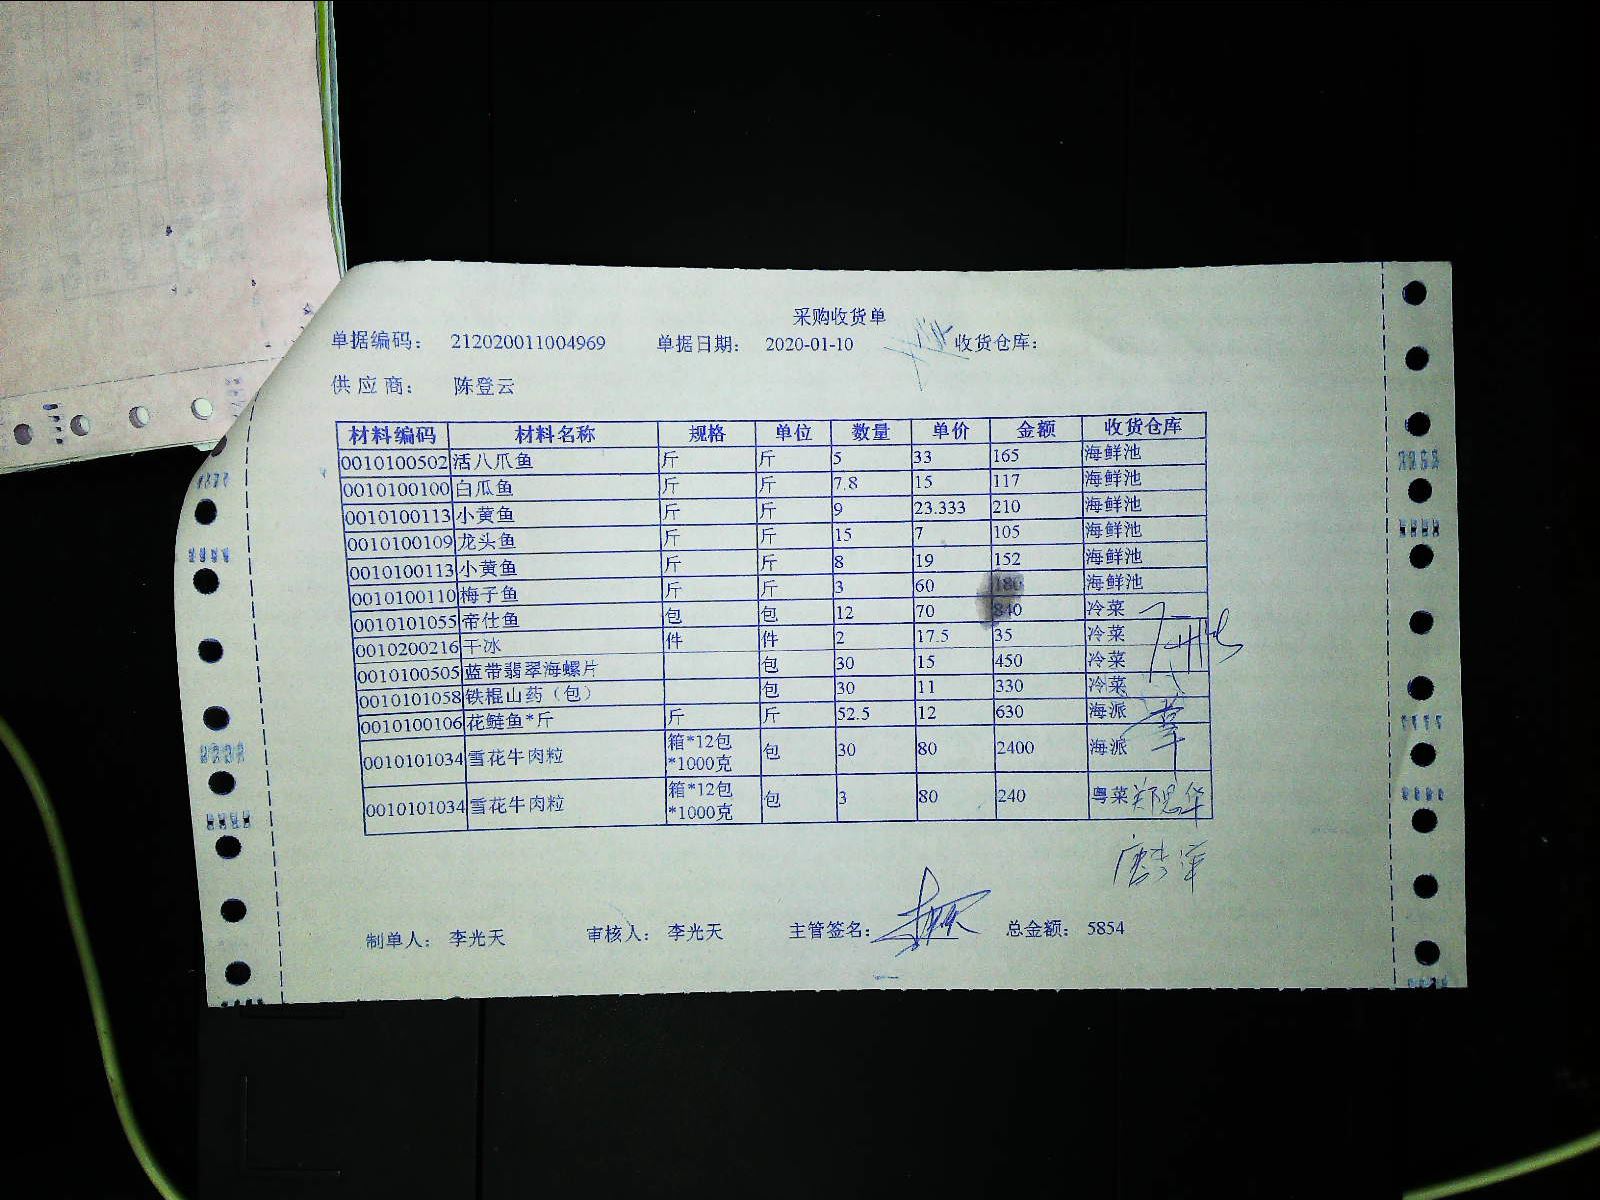 采购收货单
单据编码： 212020011004969 单据日期： 2020-01-10 收货仓库：
供应商： 陈登云
材料编码 材料名称 规格 单位 数量 单价 金额 收货仓库
0010100502 活八爪鱼 斤 斤 5 33 165 海鲜池
0010100100 白瓜鱼 斤 斤 7.8 15 117 海鲜池
0010100113 小黄鱼 斤 斤 9 23.333 210 海鲜池
0010100109 龙头鱼 斤 斤 15 7 105 海鲜池
0010100113 小黄鱼 斤 斤 8 19 152 海鲜池
0010100110 梅子鱼 斤 斤 3 60 180 海鲜池
0010101055 帝仕鱼 包 包 12 70 840 冷菜
0010200216 干冰 件 件 2 17.5 35 冷菜
0010100505 蓝带翡翠海螺片 包 30 15 450 冷菜
0010101058 铁棍山药（包） 包 30 11 330 冷菜
0010100106 花鲢鱼*斤 斤 斤 52.5 12 630 海派
0010101034 雪花牛肉粒 箱*12包*1000克 包 30 80 2400 海派
0010101034 雪花牛肉粒 箱*12包*1000克 包 3 80 240 粤菜
制单人： 李光天 审核人： 李光天 主管签名： 总金额： 5854